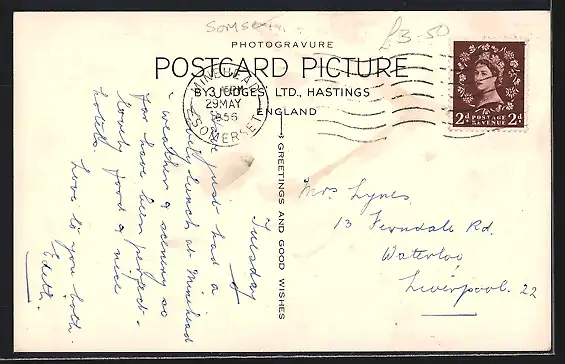 Somse
£3.50
PHOTOGRAVURE
POSTCARD PICTURE
BY JUDGES LTD., HASTINGS
ENGLAND
MINEHEAD
29 MAY
1956
SOMERSET
2d POSTAGE REVENUE 2d
GREETINGS AND GOOD WISHES
Tuesday
Have just had a
lovely lunch at Minehead
weather & scenery so
far have been perfect.
Lovely food & nice
hotels.
Love to you both.
Edith.
Mrs Lynes
13 Ferndale Rd.
Waterloo
Liverpool. 22